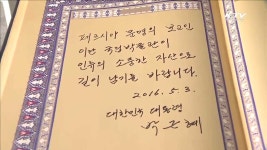 KTV
페르시아 문명의 보고인
이란 국립박물관이
인류의 소중한 자산으로
길이 남기를 바랍니다.
2016. 5. 3.
대한민국 대통령
박 근 혜